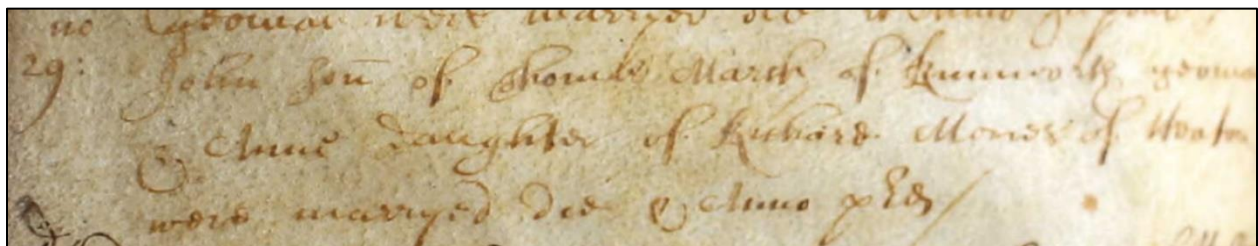 yeoman were marryed die
29: John son of Thomas Marsh of Rumworth yeoma
& Anne daughter of Richard Mones of Heaton
were marryed die & Anno pred